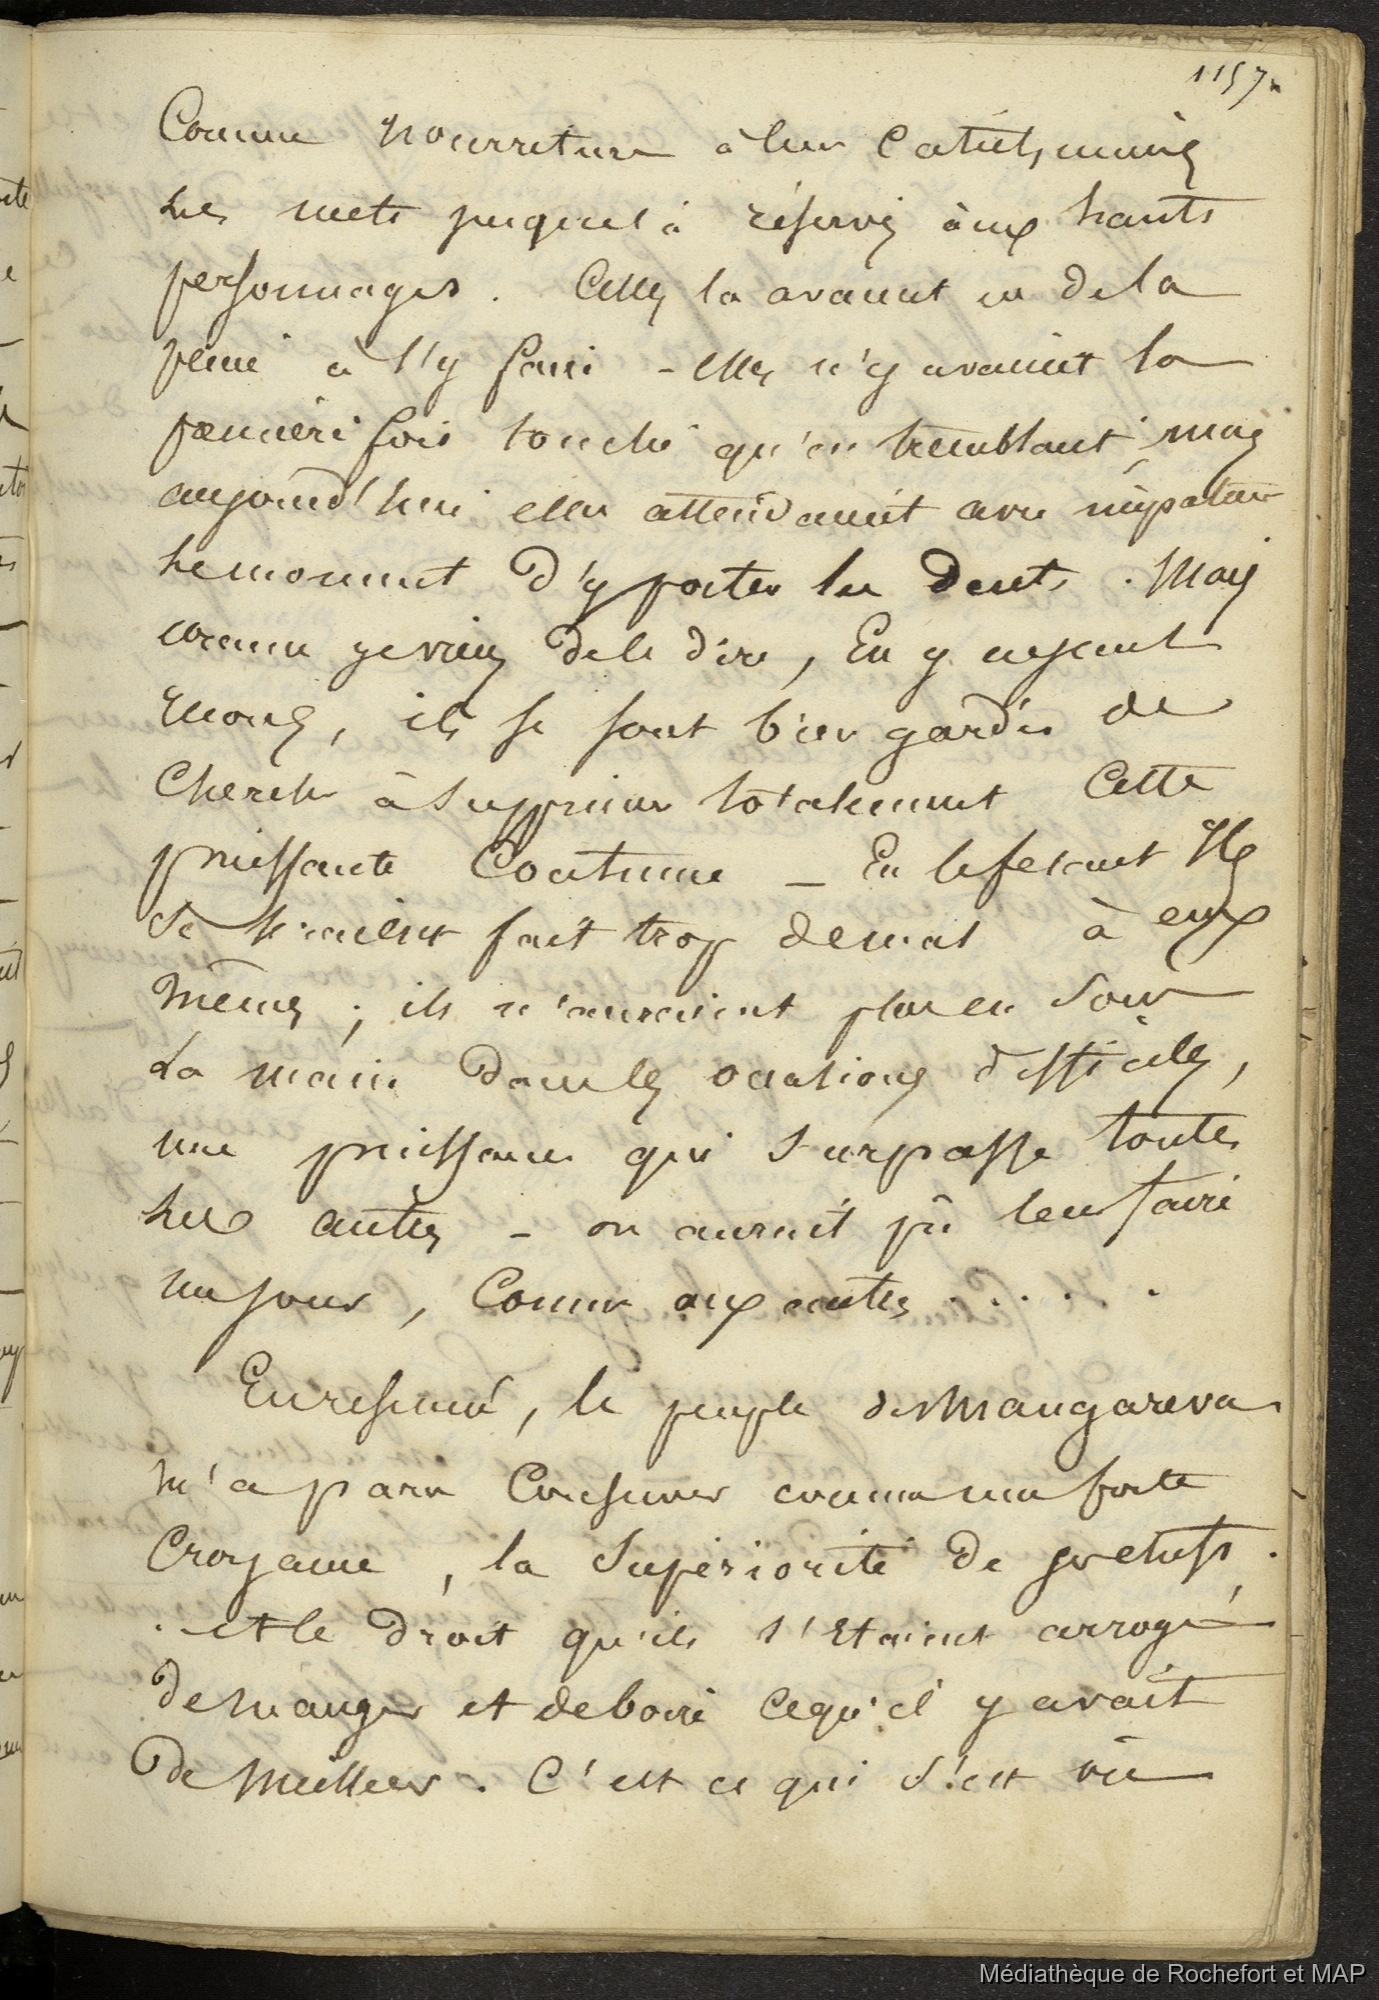 1157.
Comme nourriture à leur Catéchumènes
les mets jusque là réservés aux hauts
personnages. Celles la avaient eu de la
peine à s'y faire - elles n'y avaient la
première fois touché qu'en tremblant, mais
aujourd'hui elles attendaient avec impatience
le moment d'y porter les dents. Mais
comme je viens de le dire, En y ayant
, ils se sont bien gardés de
Chercher à supprimer totalement Cette
puissante Coutume - En le fesant Ils
se seraient fait trop de mal à eux
mêmes ; ils n'auraient plus eu sous
La main dans les occasions difficiles,
une puissance qui surpasse toutes
les autres - on aurait pû leur faire
un jour, Comme aux autres . . . . .
En resumé, le peuple de Mangareva
m'a paru Conserver comme une forte
Croyance, la Supériorité de ses chefs
. et le droit qu'ils s'étaient arrogé
de manger et de boire ce qu'il y avait
de Meilleur. C'est ce qui s'est vû
Médiathèque de Rochefort et MAP